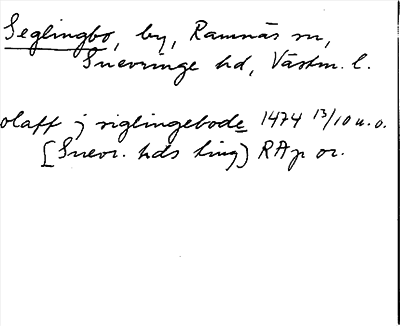 Seglingbo, by, Ramnäs sn,
Snevringe hd, Västm. l.
olaff j siglingebode 1474 13/10 u.o.
(Snevr. hds ting) RAp or.